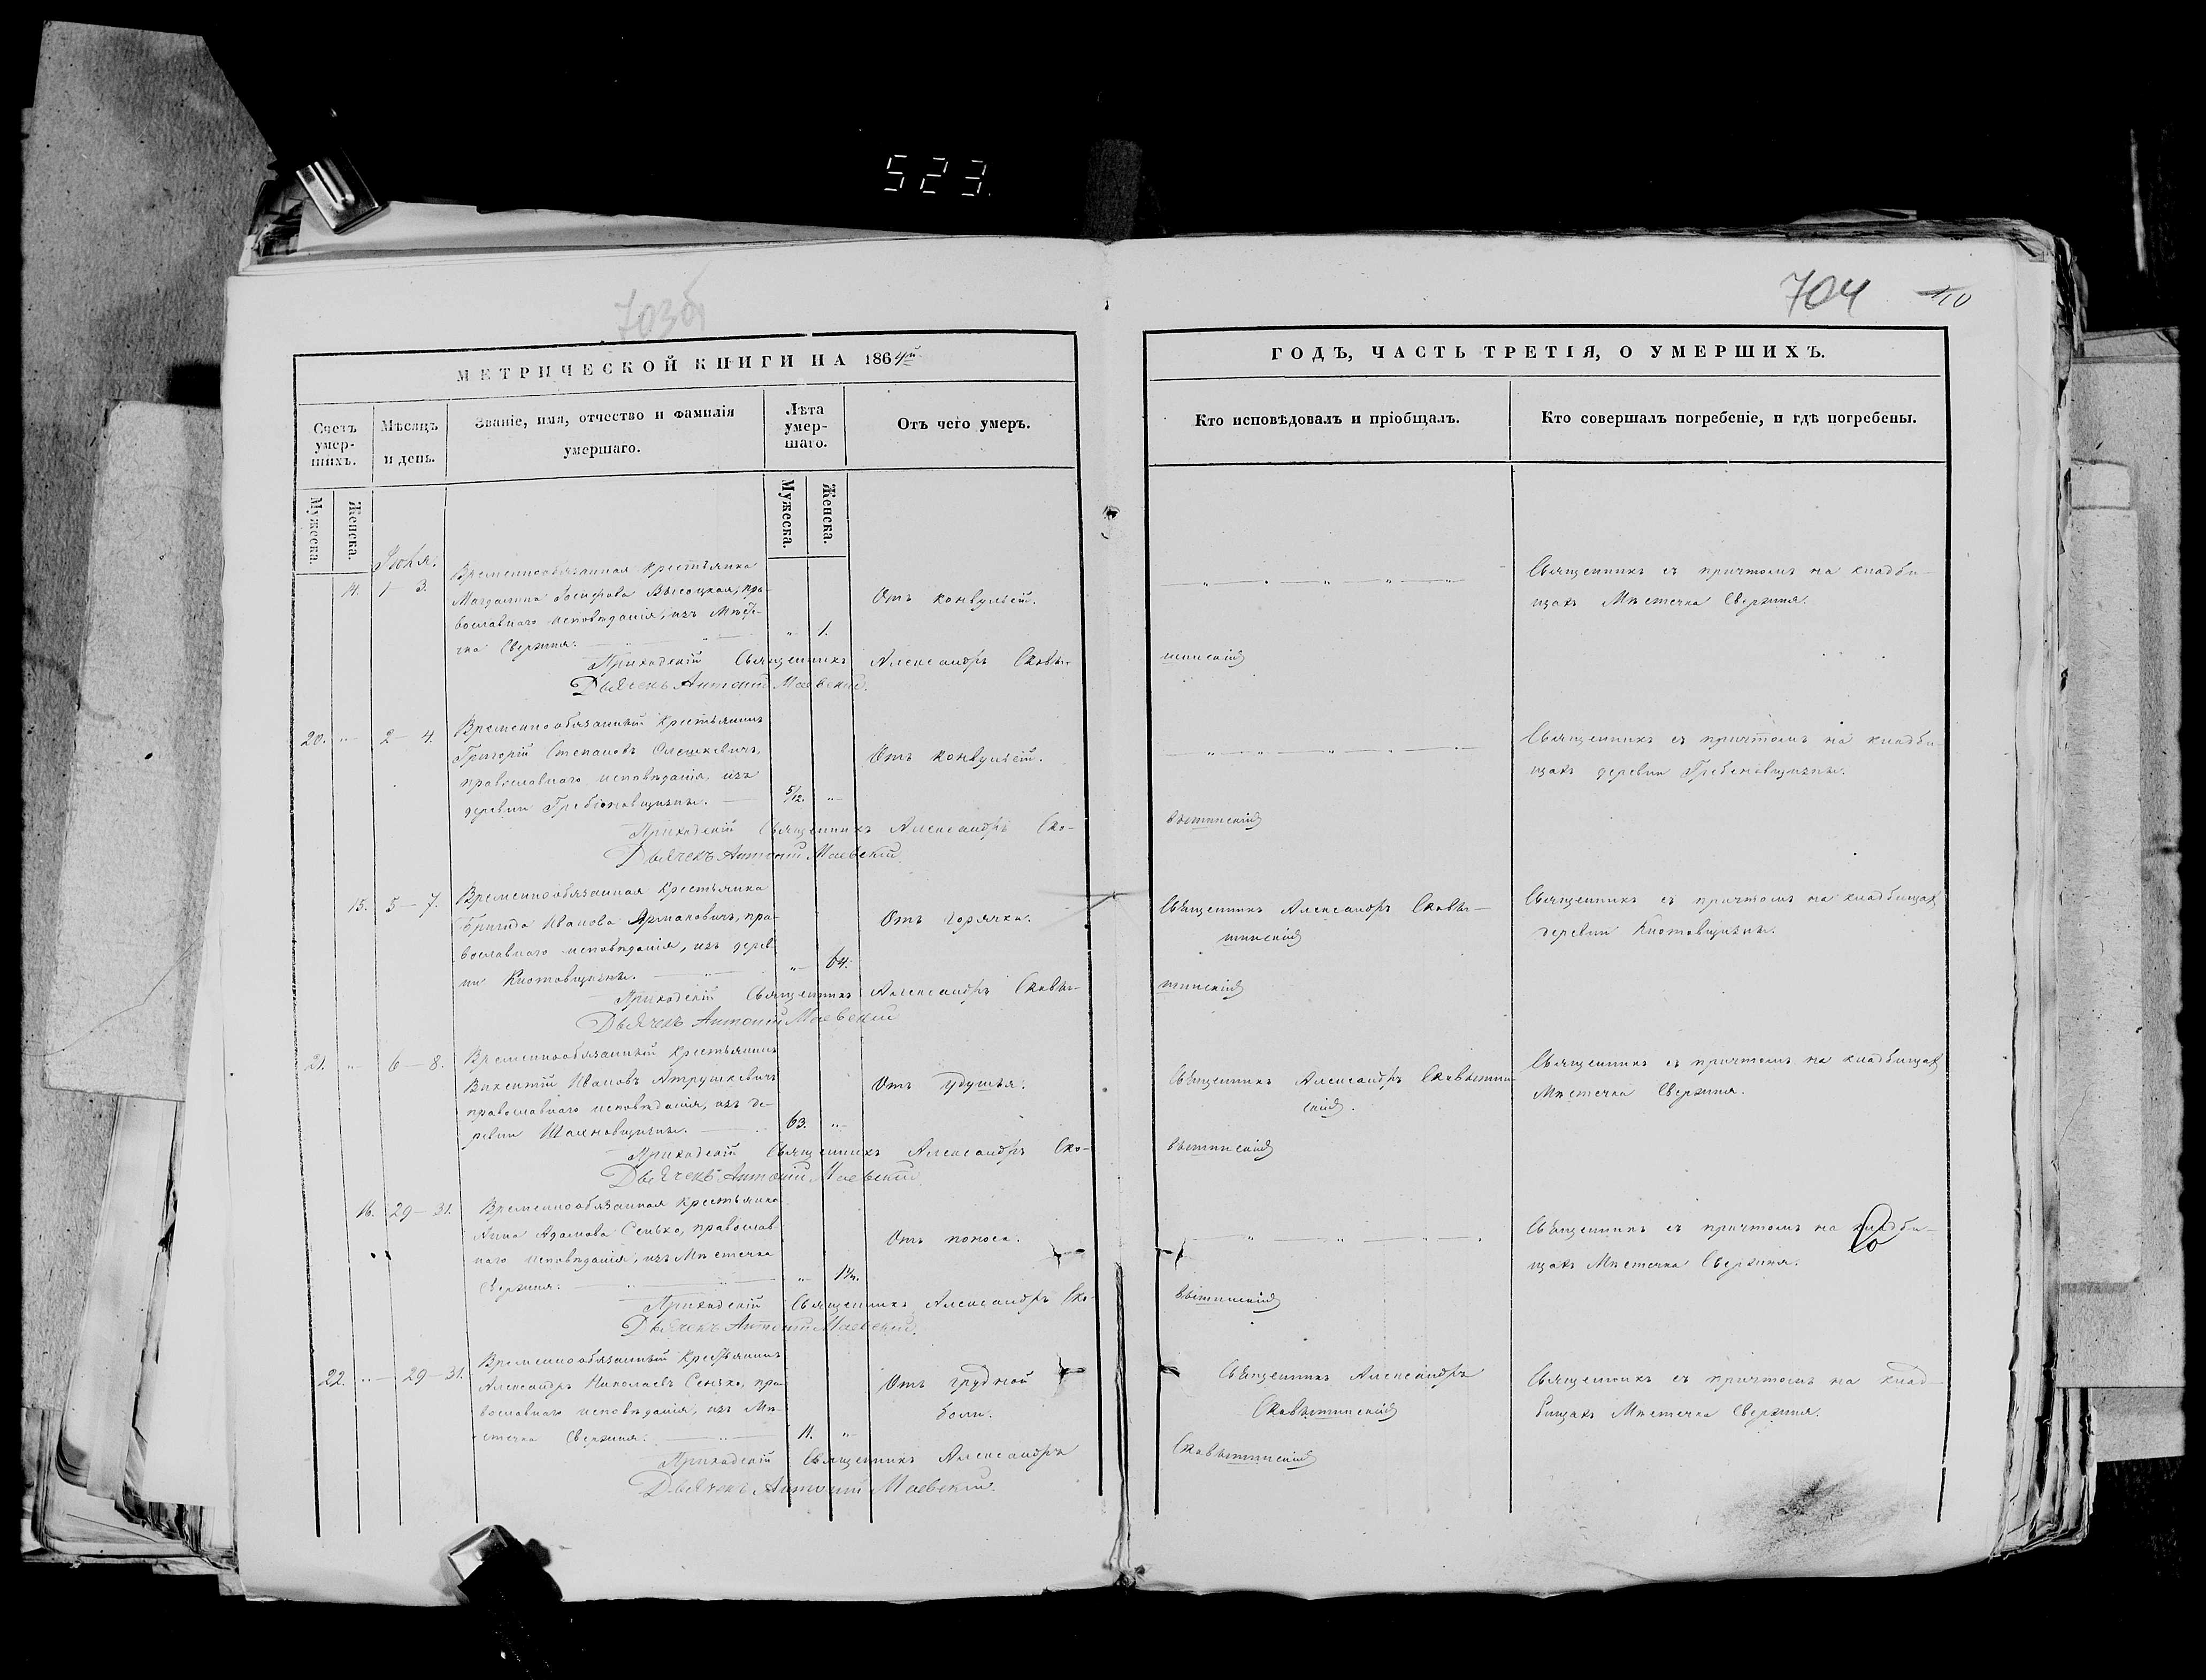 523.
703об
704 110
МЕТРИЧЕСКОЙ КНИГИ НА 1864й
ГОДЪ, ЧАСТЬ ТРЕТІЯ, О УМЕРШИХЪ.
Счетъ умер-шихъ.
Мѣсяцъ и день.
Званіе, имя, отчество и фамилія умершаго.
Лѣта умер-шаго.
Отъ чего умеръ.
Кто исповѣдовалъ и пріобщалъ.
Кто совершалъ погребеніе, и гдѣ погребены.
Мужеска.
Женска.
Мужеска.
Женска.
Іюля.
14. 1 — 3.
Временнообязанная крестьянка
Магдалина Іосифова Высоцкая, пра-
вославнаго исповѣданія, изъ Мѣсте-
чка Свержня. „ 1.
Отъ конвульсій.
Священникъ съ причтомъ на кладби-
щахъ Мѣстечка Свержня.
Приходскій Священникъ Александръ Сковы-
тинскій
Дьячекъ Антоній Маевскій.
20. „ 2 — 4.
Временнообязанный крестьянинъ
Григорій Степановъ Олешкевичъ,
православнаго исповѣданія, изъ
деревни Гребеновщизны. 5/12. „
Отъ конвульсій.
Священникъ съ причтомъ на кладби-
щахъ деревни Гребеновщизны.
Приходскій Священникъ Александръ Ско-
вытинскій
Дьячекъ Антоній Маевскій.
15. 5 — 7.
Временнообязанная крестьянка
Бригида Иванова Ярмаковичъ, пра-
вославнаго исповѣданія, изъ дерев-
ни Кнотовщизны. „ 64.
Отъ горячки.
Священникъ Александръ Сковы-
тинскій
Священникъ съ причтомъ на кладбищахъ
деревни Кнотовщизны.
Приходскій Священникъ Александръ Сковы-
тинскій
Дьячекъ Антоній Маевскій
21. „ 6 — 8.
Временнообязанный крестьянинъ
Викентій Ивановъ Атрушкевичъ
православнаго исповѣданія, изъ де-
ревни 63. „
Отъ удушья.
Священникъ Александръ Сковытин-
скій.
Священникъ съ причтомъ на кладбищахъ
Мѣстечка Свержня.
Приходскій Священникъ Александръ Ско-
вытинскій
Дьячекъ Антоній Маевскій
16. 29 — 31.
Временнообязанная крестьянка
Анна Адамова Сенько, православ-
наго исповѣданія, изъ Мѣстечка
Свержня. „
Отъ поноса.
Священникъ съ причтомъ на кладби-
щахъ Мѣстечка Свержня.
Приходскій Священникъ Александръ Ско-
вытинскій
Дьячекъ Антоній Маевскій.
22. „ 29 — 31.
Временнообязанный крестьянинъ
Александръ Николаевъ Сенько, пра-
вославнаго исповѣданія, изъ Мѣ-
стечка Свержня. 11. „
Отъ грудной
боли.
Священникъ Александръ
Сковытинскій
Священникъ съ причтомъ на клад-
бищахъ Мѣстечка Свержня.
Приходскій Священникъ Александръ
Сковытинскій
Дьячекъ Антоній Маевскій.